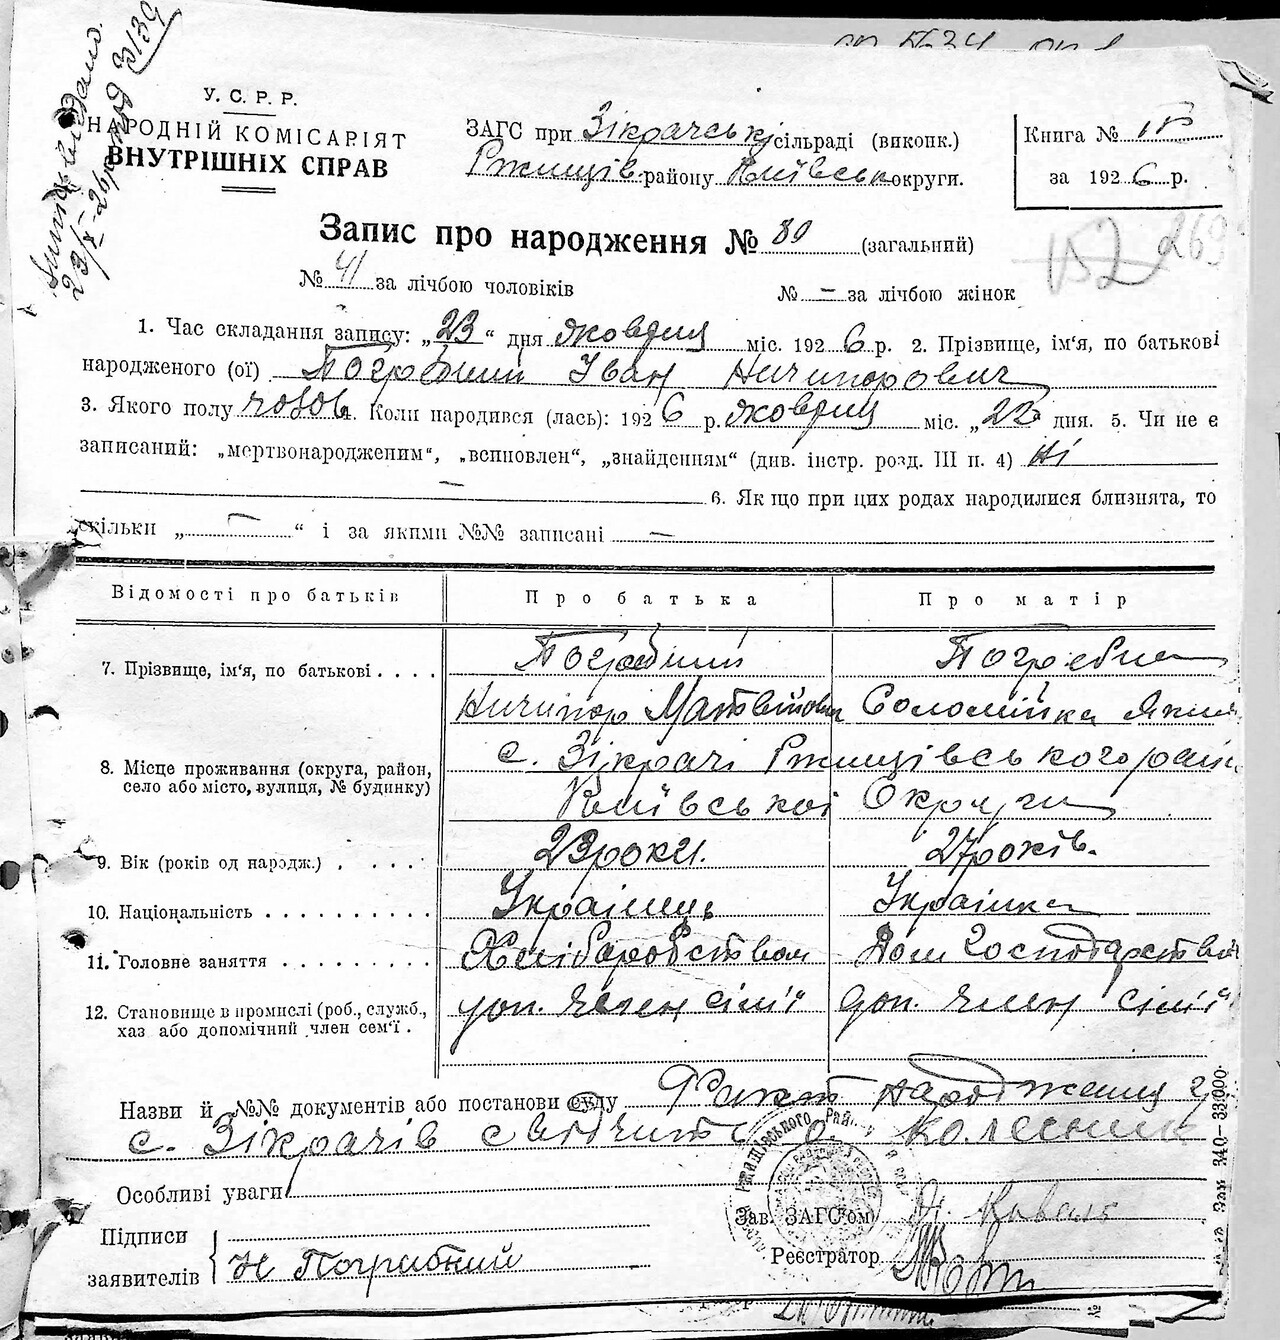 У. С. Р. Р.
НАРОДНІЙ КОМІСАРІЯТ
ВНУТРІШНІХ СПРАВ
ЗАГС при Зікрачські сільраді (виконк.)
Ржищів. району Київськ округи.
Книга №
за 1926 р.
Запис про народження № 80 (загальний)
152 263
№ 41 за лічбою чоловіків № – за лічбою жінок
1. Час складання запису: „23“ дня жовтня міс. 1926 р. 2. Прізвище, ім'я, по батькові
народженого (ої) Погребний Іван Ничипорович
3. Якого полу чолов. Коли народився (лась): 1926 р. жовтня міс. „22 дня. 5. Чи не є
записаний: „мертвонародженим“, „всиновлен“, „знайденням“ (див. інстр. розд. III п. 4) Ні
— 6. Як що при цих родах народилися близнята, то
скільки „ — “ і за якими №№ записані —
Відомості про батьків Про батька Про матір
7. Прізвище, ім'я, по батькові . . . . Погребний Погребна
Ничипор Матвійович Соломійка Яким
8. Місце проживання (округа, район, село або місто, вулиця, № будинку) с. Зікрачі Ржищівського рай
Київської Округи
9. Вік (років од народж.) . . . . 23 роки. 27 років.
10. Національність . . . . . . . . . . Українець Українка
11. Головне заняття . . . . . . . . . Хліборобством Дом Господарством
12. Становище в промислі (роб., служб., хаз або допомічний член сем'ї . доп. член сім'ї доп. член сім'ї
Назви й №№ документів або постанови суду Факт народження
с. Зікрачів свідчить о. Колесник
Особливі уваги
Зав. ЗАГС'ом Н. Коваль
Підписи
заявителів Н Погрибний
Реєстратор